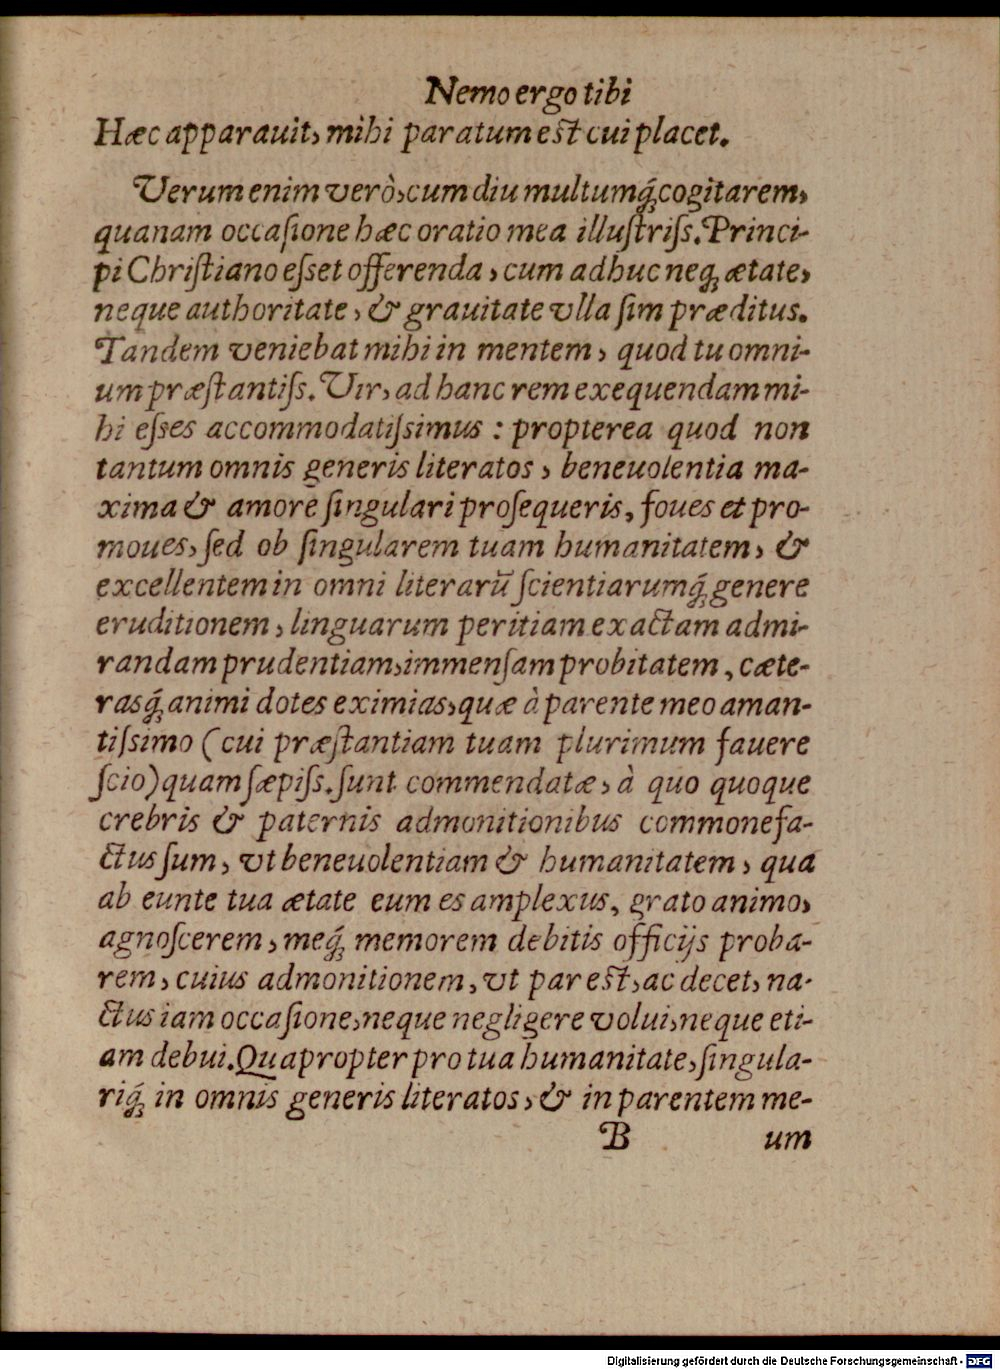 Nemo ergo tibi
Hæc apparauit, mihi paratum est cui placet.
Verum enim verò, cum diu multumq́; cogitarem,
quanam occaſione hæc oratio mea illuſtriſs. Princi-
pi Chriſtiano eſset offerenda, cum adhuc neq; ætate,
neque authoritate, & grauitate vlla ſim præditus.
Tandem veniebat mihi in mentem, quod tu omni-
um præſtantiſs. Vir, ad hanc rem exequendam mi-
hi eſses accommodatiſsimus : propterea quod non
tantum omnis generis literatos, beneuolentia ma-
xima & amore ſingulari proſequeris, foues et pro-
moues, ſed ob ſingularem tuam humanitatem, &
excellentem in omni literarũ ſcientiarumq́; genere
eruditionem, linguarum peritiam exactam admi-
randam prudentiam, immenſam probitatem, cæte-
rasq́; animi dotes eximias, quæ à parente meo aman-
tiſsimo (cui præſtantiam tuam plurimum fauere
ſcio) quam ſæpiſs. ſunt commendatæ, à quo quoque
crebris & paternis admonitionibus commonefa-
ctus ſum, vt beneuolentiam & humanitatem, qua
ab eunte tua ætate eum es amplexus, grato animo,
agnoſcerem, meq́; memorem debitis officijs proba-
rem, cuius admonitionem, vt par est, ac decet, na-
ctus iam occaſione, neque negligere volui, neque eti-
am debui. Quapropter pro tua humanitate, ſingula-
riq́; in omnis generis literatos, & in parentem me-
B um
Digitalisierung gefördert durch die Deutsche Forschungsgemeinschaft - DFG